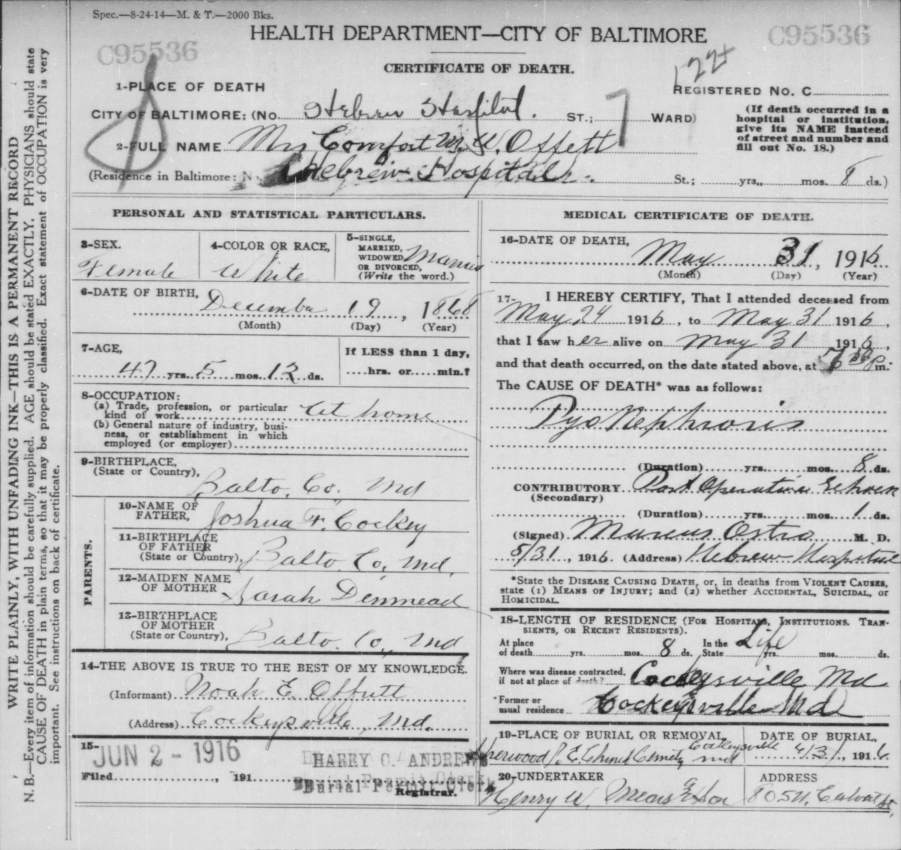 Spec.—8-24-14—M. & T.—2000 Bks.
HEALTH DEPARTMENT—CITY OF BALTIMORE
C95536
C95536
CERTIFICATE OF DEATH.
1-PLACE OF DEATH
REGISTERED No. C
CITY OF BALTIMORE: (No. Hebrew Hospital. ST.; 7 WARD)
(If death occurred in a hospital or institution, give its NAME instead of street and number and fill out No. 18.)
2-FULL NAME Mrs Comfort W. Offett
(Residence in Baltimore: No. Hebrew Hospital St.; yrs., mos. 8 ds.)
PERSONAL AND STATISTICAL PARTICULARS.
3-SEX. Female
4-COLOR OR RACE, White
5-SINGLE, MARRIED, WIDOWED OR DIVORCED, (Write the word.) Married
6-DATE OF BIRTH, December 19, 1868
(Month) (Day) (Year)
7-AGE, 47 yrs. 5 mos. 12 ds.
If LESS than 1 day, hrs. or min.?
8-OCCUPATION:
(a) Trade, profession, or particular kind of work At home
(b) General nature of industry, business, or establishment in which employed (or employer)
9-BIRTHPLACE, (State or Country), Balto. Co. Md
PARENTS.
10-NAME OF FATHER, Joshua F. Cockey
11-BIRTHPLACE OF FATHER (State or Country), Balto. Co, Md.
12-MAIDEN NAME OF MOTHER Sarah Denmead
13-BIRTHPLACE OF MOTHER (State or Country), Balto. Co, Md
14-THE ABOVE IS TRUE TO THE BEST OF MY KNOWLEDGE.
(Informant) Noah E Offutt
(Address) Cockeysville, Md.
15-
JUN 2 - 1916
Filed, 191
HARRY C. ANDREW
Burial Permit Clerk
Registrar.
MEDICAL CERTIFICATE OF DEATH.
16-DATE OF DEATH, May 31, 1916
(Month) (Day) (Year)
17- I HEREBY CERTIFY, That I attended deceased from
May 24 1916, to May 31 1916,
that I saw her alive on May 31 1916,
and that death occurred, on the date stated above, at m.
The CAUSE OF DEATH* was as follows:
Pyo Nephrosis
(Duration) yrs. mos. 8 ds.
CONTRIBUTORY Post Operative
(Secondary)
(Duration) yrs. mos. 1 ds.
(Signed) Marcus Ostro M. D.
5/31, 1916 (Address) Hebrew Hospital
*State the DISEASE CAUSING DEATH, or, in deaths from VIOLENT CAUSES, state (1) MEANS OF INJURY; and (2) whether ACCIDENTAL, SUICIDAL, or HOMICIDAL.
18-LENGTH OF RESIDENCE (FOR HOSPITALS, INSTITUTIONS, TRANSIENTS, OR RECENT RESIDENTS).
At place of death yrs. mos. 8 ds. In the State Life yrs. mos. ds.
Where was disease contracted, if not at place of death? Cockeysville Md
Former or usual residence Cockeysville Md
19-PLACE OF BURIAL OR REMOVAL, Sherwood P. E. Church Cemty Cockeysville Md
DATE OF BURIAL, 1916
20-UNDERTAKER Henry W. Mears & Son
ADDRESS 805 N. Calvert St.
N. B.—Every item of information should be carefully supplied. AGE should be stated EXACTLY. PHYSICIANS should state CAUSE OF DEATH in plain terms, so that it may be properly classified. Exact statement of OCCUPATION is very important. See instructions on back of certificate.
WRITE PLAINLY, WITH UNFADING INK—THIS IS A PERMANENT RECORD